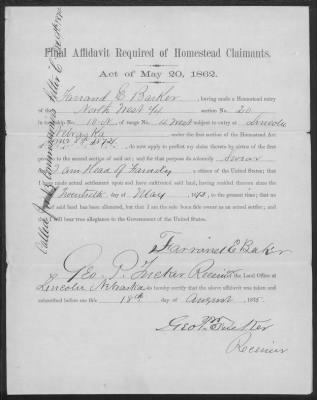 Final Affidavit Required of Homestead Claimants.
Act of May 20, 1862.
I, Farrand C Baker, having made a Homestead entry
of the North West 1/4 section No. 20
in township No. 10 N of range No. 4 West subject to entry at Lincoln
Nebraska under the first section of the Homestead Act
of do now apply to perfect my claim thereto by virtue of the first
proviso to the second section of said act; and for that purpose do solemnly Swear
that I am Head of Family citizen of the United States; that I
have made actual settlement upon and have cultivated said land, having resided thereon since the
Twentieth day of May, to the present time; that no
part of said land has been alienated, but that I am the sole bona fide owner as an actual settler; and
that I will bear true allegiance to the Government of the United States.
Farrand C Baker
I, Geo. P. Tucker Receiver of the Land Office at
Lincoln Nebraska do hereby certify that the above affidavit was taken and
subscribed before me this 18th day of August 1875.
Geo. P. Tucker
Receiver